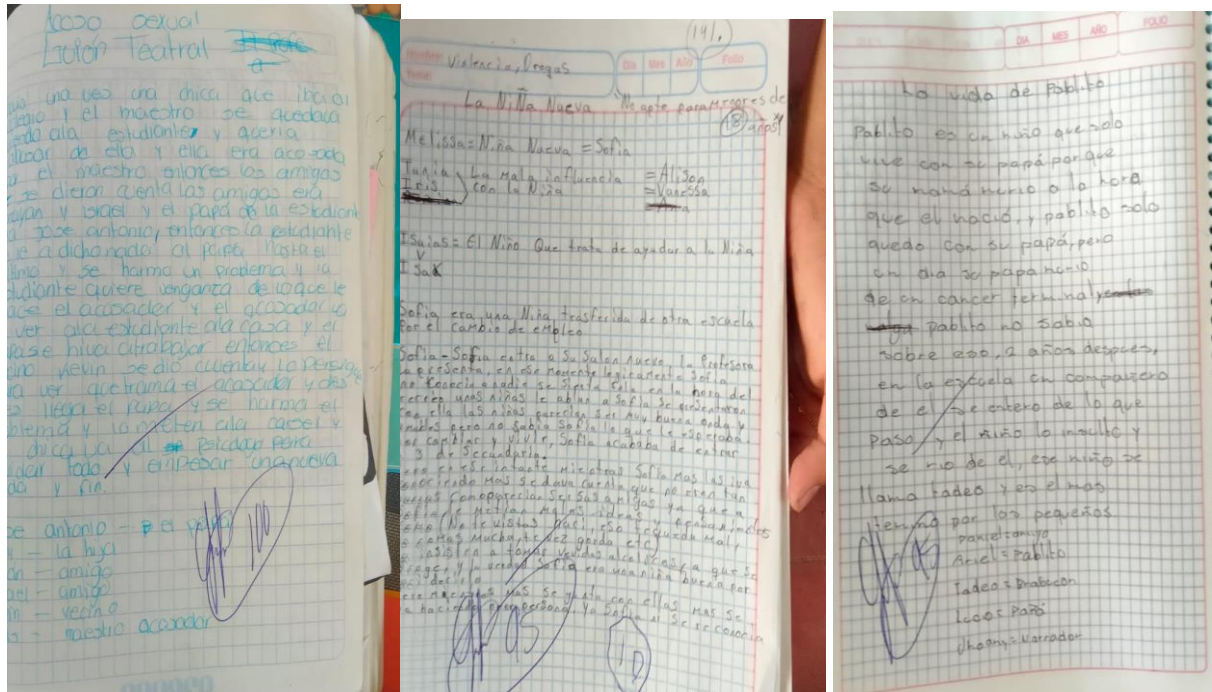 Acoso sexual
Acción Teatral
una vez una chica que iba al
y el maestro se quedaba
ala estudiante y queria
de ella y ella era acosada
el maestro entonces los amigos
se dieron cuenta los amigos era
y Israel y el papá de la estudiant
jose antonio, entonces la estudiante
a dicho nada al papá hasta el
y se harmo un problema y la
quiere venganza de lo que le
el acosador y el acosador va
ver ala estudiante ala casa y el
se hiva a trabajar entonces el
Kevin se dio cuenta y lo persigue
ver que trama el acosador y
llega el papá y se harma el
y lo meten ala carcel y
chica va al psicologo para
todo y empesar una nueva
y fin.
antonio - el papá
- la hija
- amigo
- amigo
- vecino
- maestro acosador
100
14/.
Violencia, Drogas
Dia Mes Año Folio
La Niña Nueva No apte para menores de
18 años
Melissa = Niña Nueva = Sofia
Tania La Mala influencia = Alison
Iris con la Niña = Vanessa
Isaias = El Niño Que trata de ayudar a la Niña
Isak
Sofia era una Niña trasferida de otra escuela
Por el cambio de empleo
Sofia - Sofia entra a su Salon nuevo, la Profesora
la presenta, en ese momento legicamente Sofia
no conocia a nadie se sienta sola en la hora del
recreo unas niñas le ablan a Sofia se presentaron
con ella las niñas parecian ser muy buena onda y
pero no sabia Sofia lo que le esperaba
cambiar y vivir, Sofia acababa de entrar
3 de Secundaria.
en ese intante mientras Sofia mas las iva
conociendo mas se dava cuenta que no eren tan
como parecian ser sus amigas ya que a
Sofia le metian malas ideas y
(No te vistas haci, eso te queda mal,
comas mucho, te vez gorda etc)
insisten a tomar vevidas alcolicas, a que se
y la verdad Sofia era una niña buena por
decirlo
mientras mas se junta con ellas mas se
haciendo persona, Ya Sofia ni se reconocia
95
10
DIA MES AÑO FOLIO
La vida de Pablito
Pablito es un niño que solo
vive con su papá por que
su mamá murio a la hora
que el nació, y pablito solo
quedo con su papá, pero
un dia su papa murio
de un cancer terminal y
pablito no sabio
sobre eso, 2 años despues,
en la escuela un compañero
de el se entero de lo que
paso y el niño lo insulto y
se rio de el, ese niño se
llama tadeo y es el mas
por los pequeños
Daniel = amigo
Ariel = Pablito
Tadeo = Brabucon
= Papá
Jhoany = Narrador
95